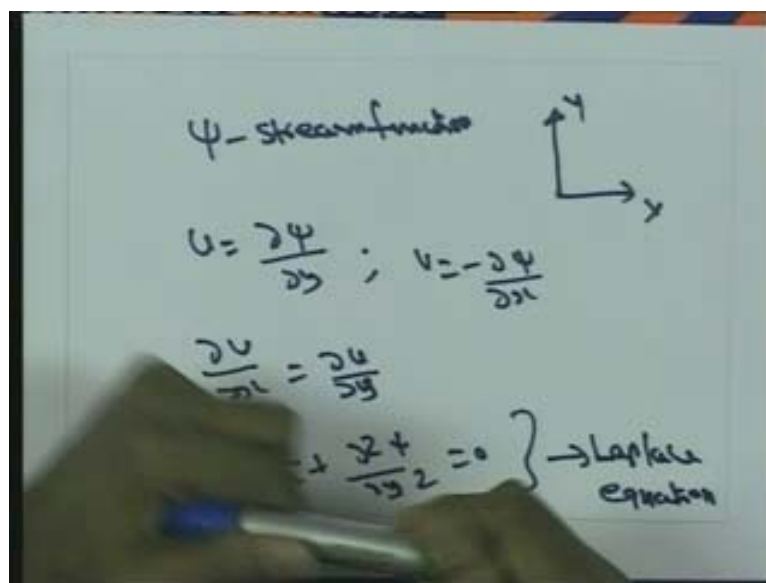 Ψ - streamfunction
Y
X
U = ∂Ψ/∂y ; v = -∂Ψ/∂x
∂v/∂x = ∂u/∂y
+ ∂²Ψ/∂y² = 0 } → Laplace
equation